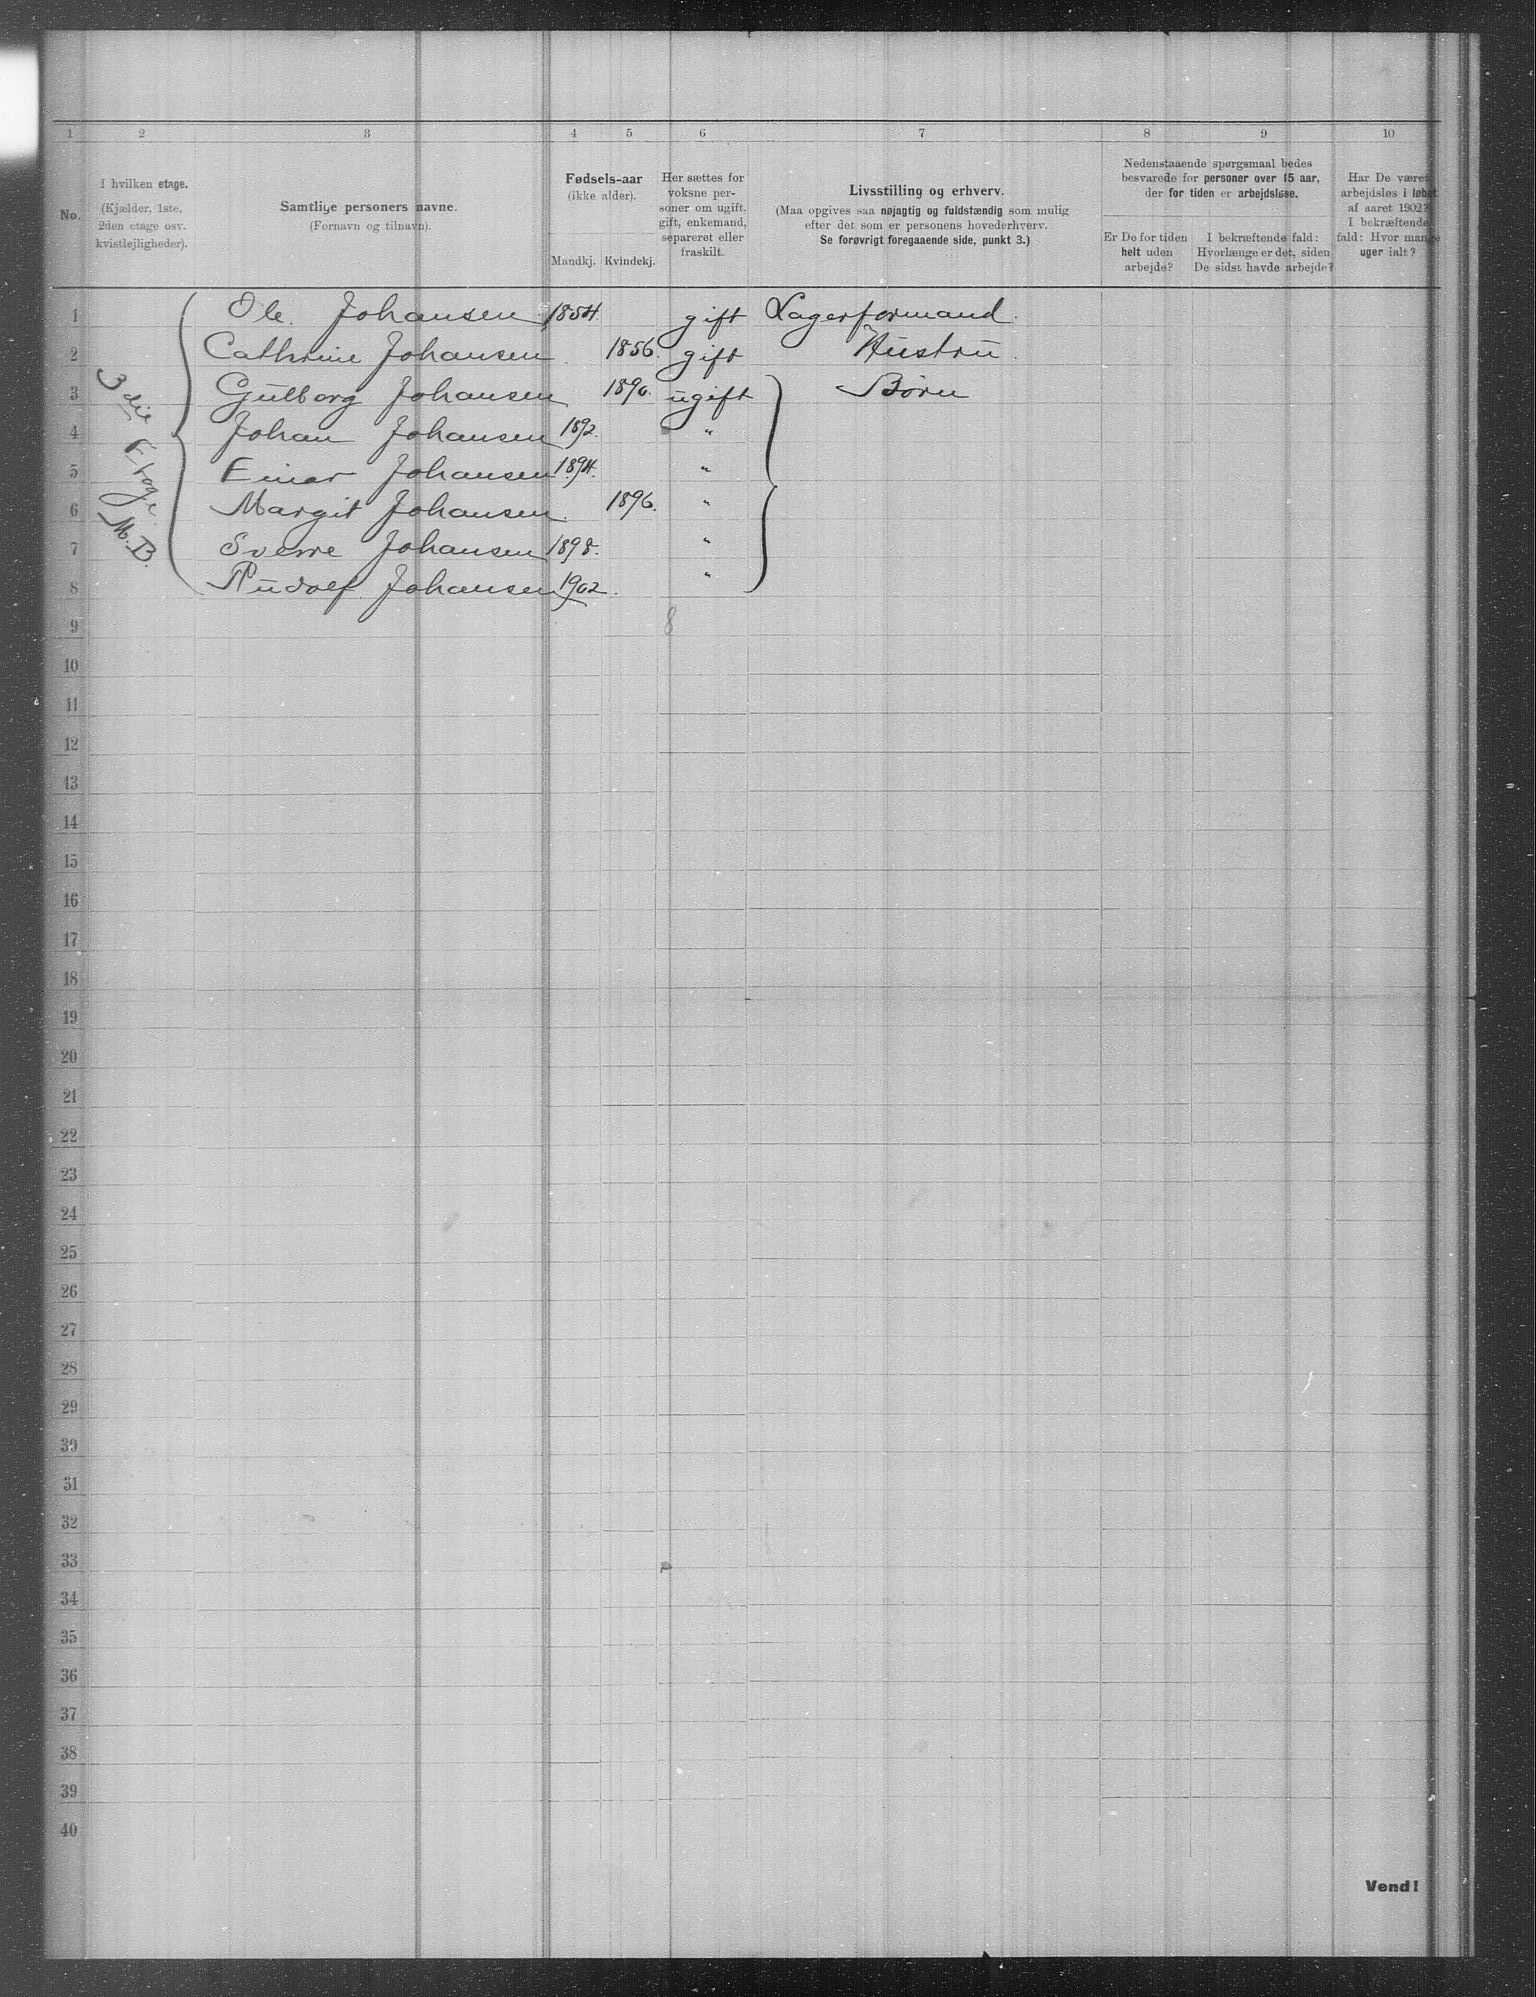 1 2 3 4 5 6 7 8 9 10
No.
I hvilken etage.
(Kjælder, 1ste,
2den etage osv.
kvistlejligheder).
Samtlige personers navne.
(Fornavn og tilnavn).
Fødsels-aar
(ikke alder).
Mandkj. Kvindekj.
Her sættes for
voksne per-
soner om ugift.
gift, enkemand,
separeret eller
fraskilt.
Livsstilling og erhverv.
(Maa opgives saa nøjagtig og fuldstændig som mulig
efter det. som er personens hovederhverv.
Se forøvrigt foregaaende side, punkt 3.)
Nedenstaaende spørgsmaal bedes
besvarede for personer over 15 aar,
der for tiden er arbejdsløse.
Er De for tiden
helt uden
arbejde?
I bekræftende fald:
Hvorlænge er det, siden
De sidst havde arbejde?
Har De været
arbejdsløs i løbet
af aaret 1902?
I bekræftende
fald: Hvor mange
uger ialt?
3die Etage
M.B.
1 Ole Johansen 1854 gift Lagerformand.
2 Cathrine Johansen 1856. gift Hustru.
3 Gulborg Johansen 1890. ugift Børn
4 Johan Johansen 1892. "
5 Einar Johansen 1894. "
6 Margit Johansen. 1896. "
7 Sverre Johansen 1898. "
8 Rudolf Johansen 1902. "
9 8
10
11
12
13
14
15
16
17
18
19
20
21
22
23
24
25
26
27
28
29
30
31
32
33
34
35
36
37
38
39
40
Vend!